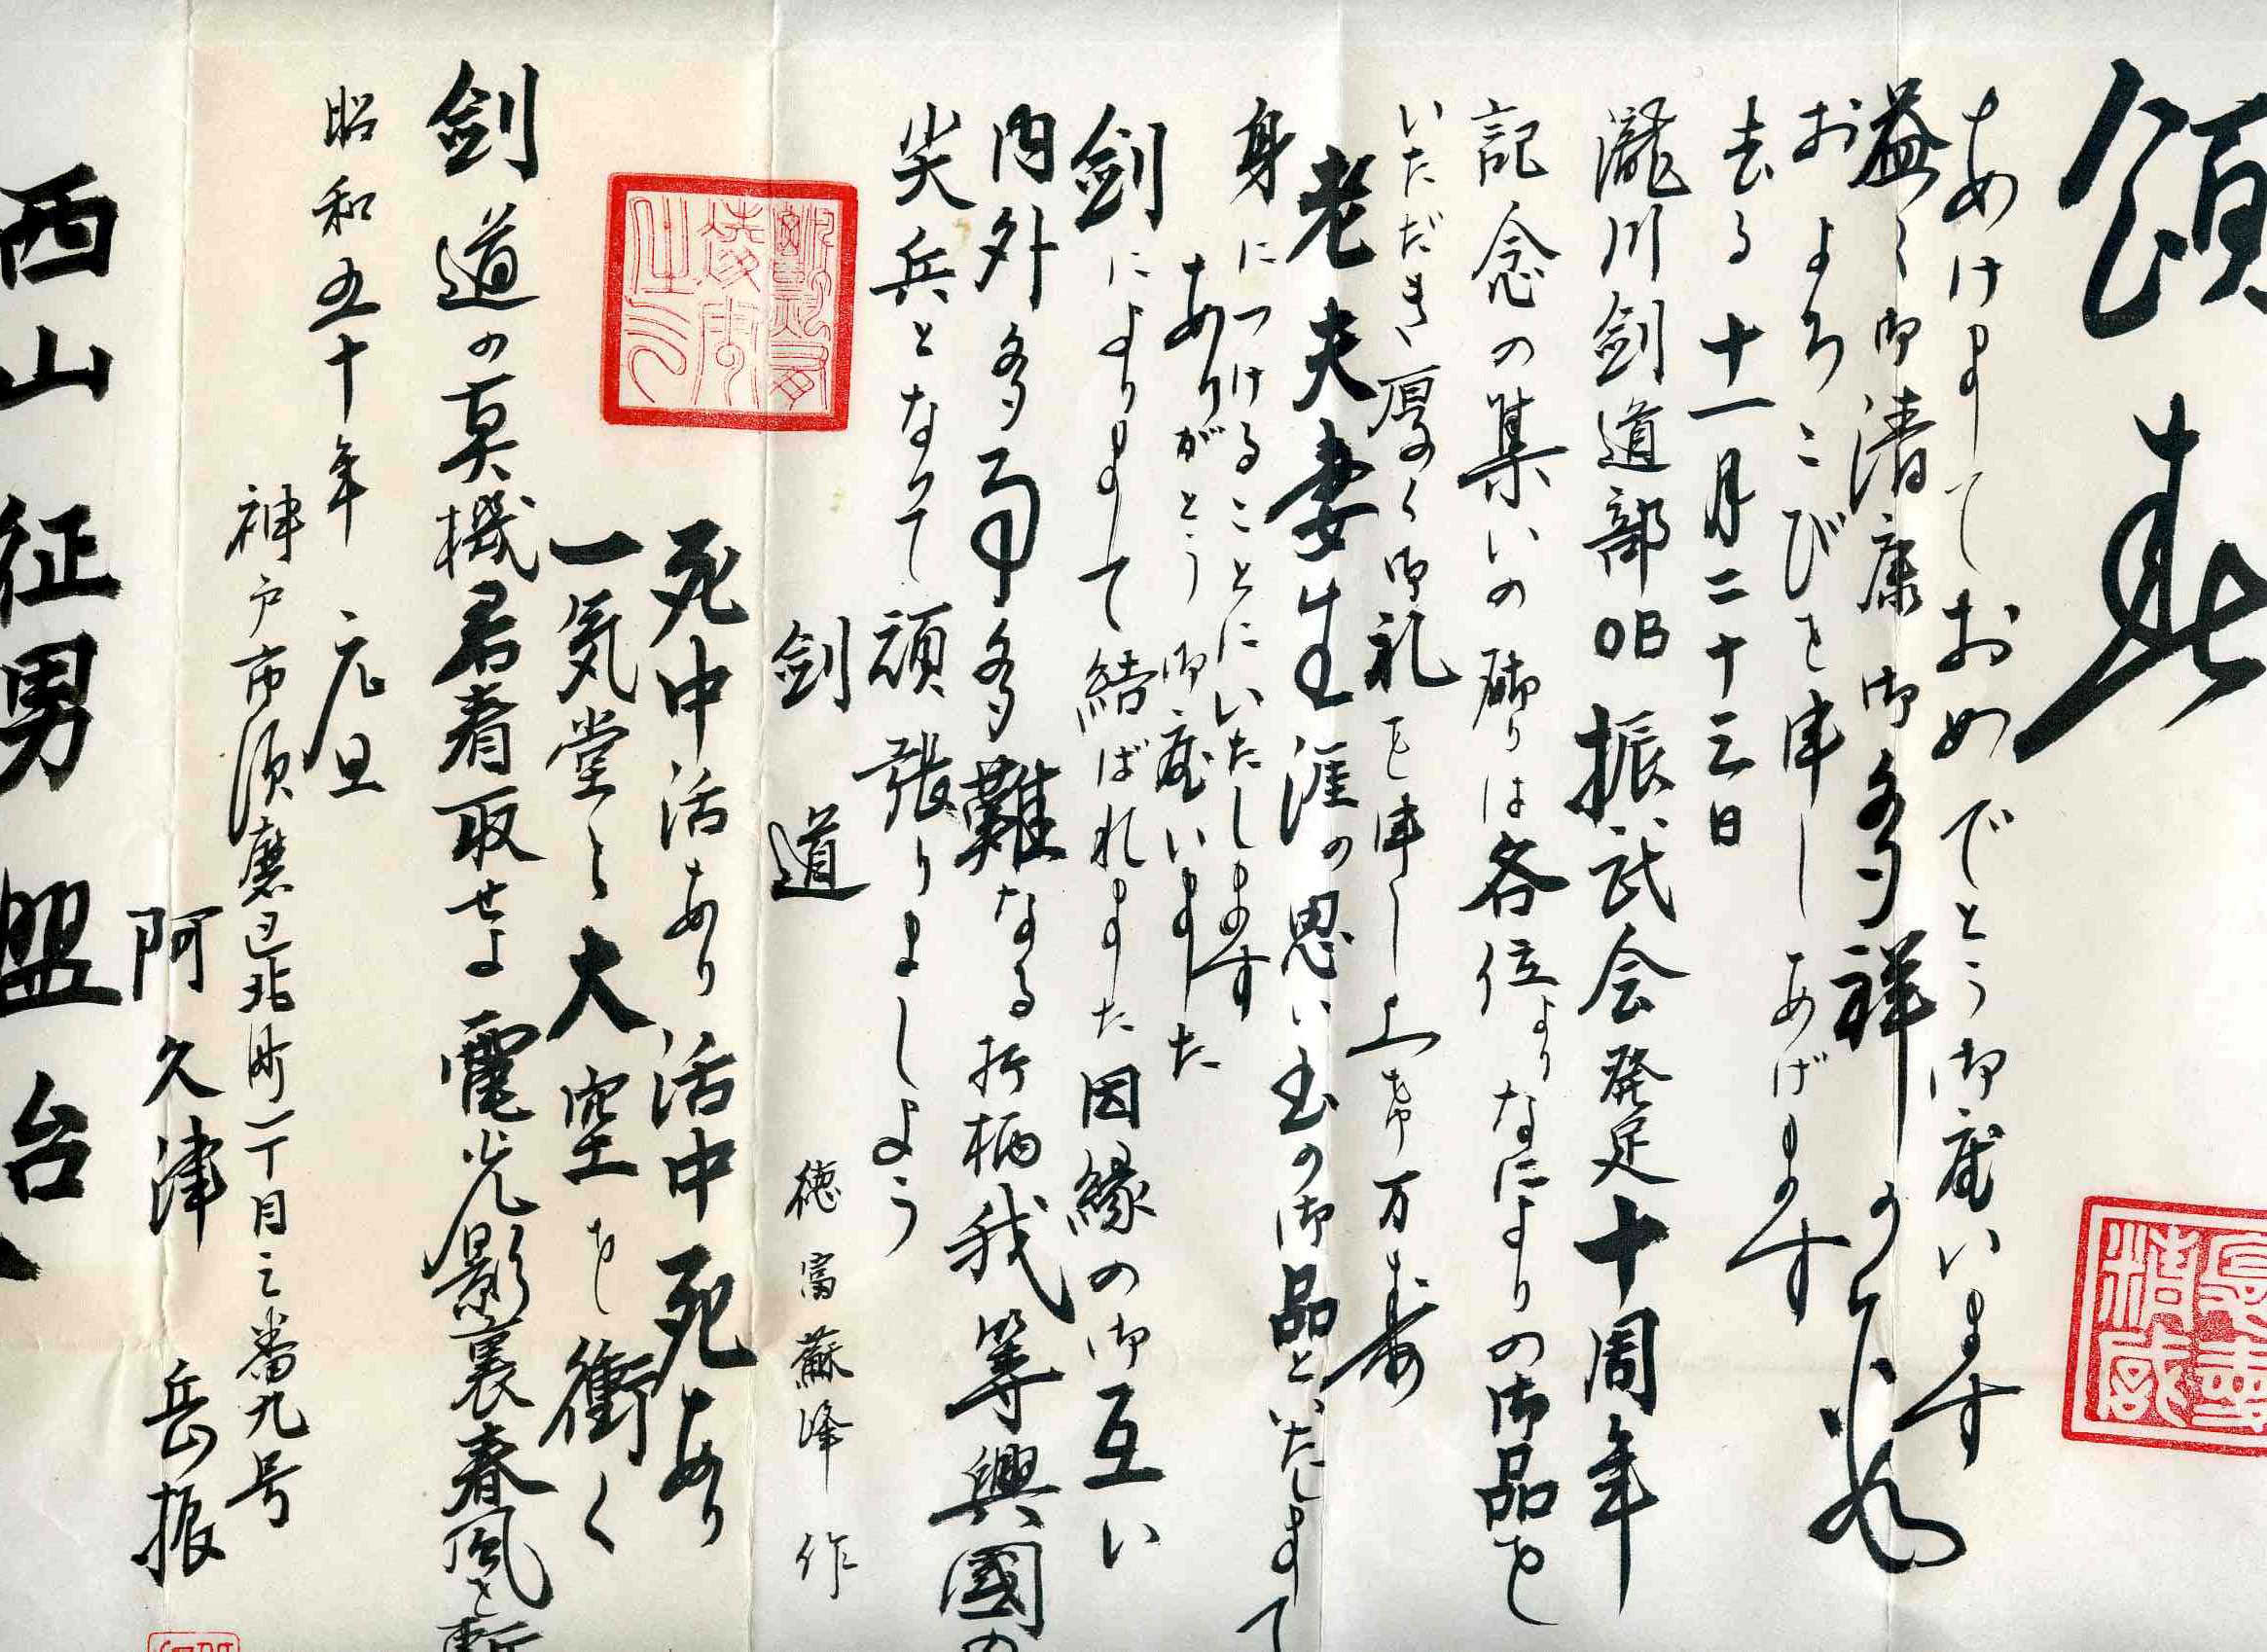 頌春
あけましておめでとう御座います
益々御清康御多祥の
およろこびを申しあげます
去る十一月二十三日
瀧川剣道部OB振武会発足十周年
記念の集いの砌りは各位よりなによりの御品を
いただき厚く御礼を申し上げ万寿
老夫妻生涯の思い出の御品といたしまして
身につけることにいたします
ありがとう御座いました
剣によりまして結ばれました因縁の御互い
内外多事多難なる折柄我等興國の
尖兵となって頑張りましよう
剣道
徳富蘇峰作
死中活あり活中死あり
一気堂々大空を衝く
剣道の真機君看取せよ電光影裏春風を斬
昭和五十年元旦
神戸市須磨区北町一丁目三番九号
阿久津岳振
西山征男盟台